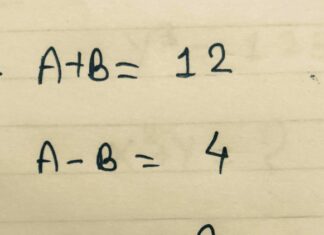 A+B= 12
A-B = 4